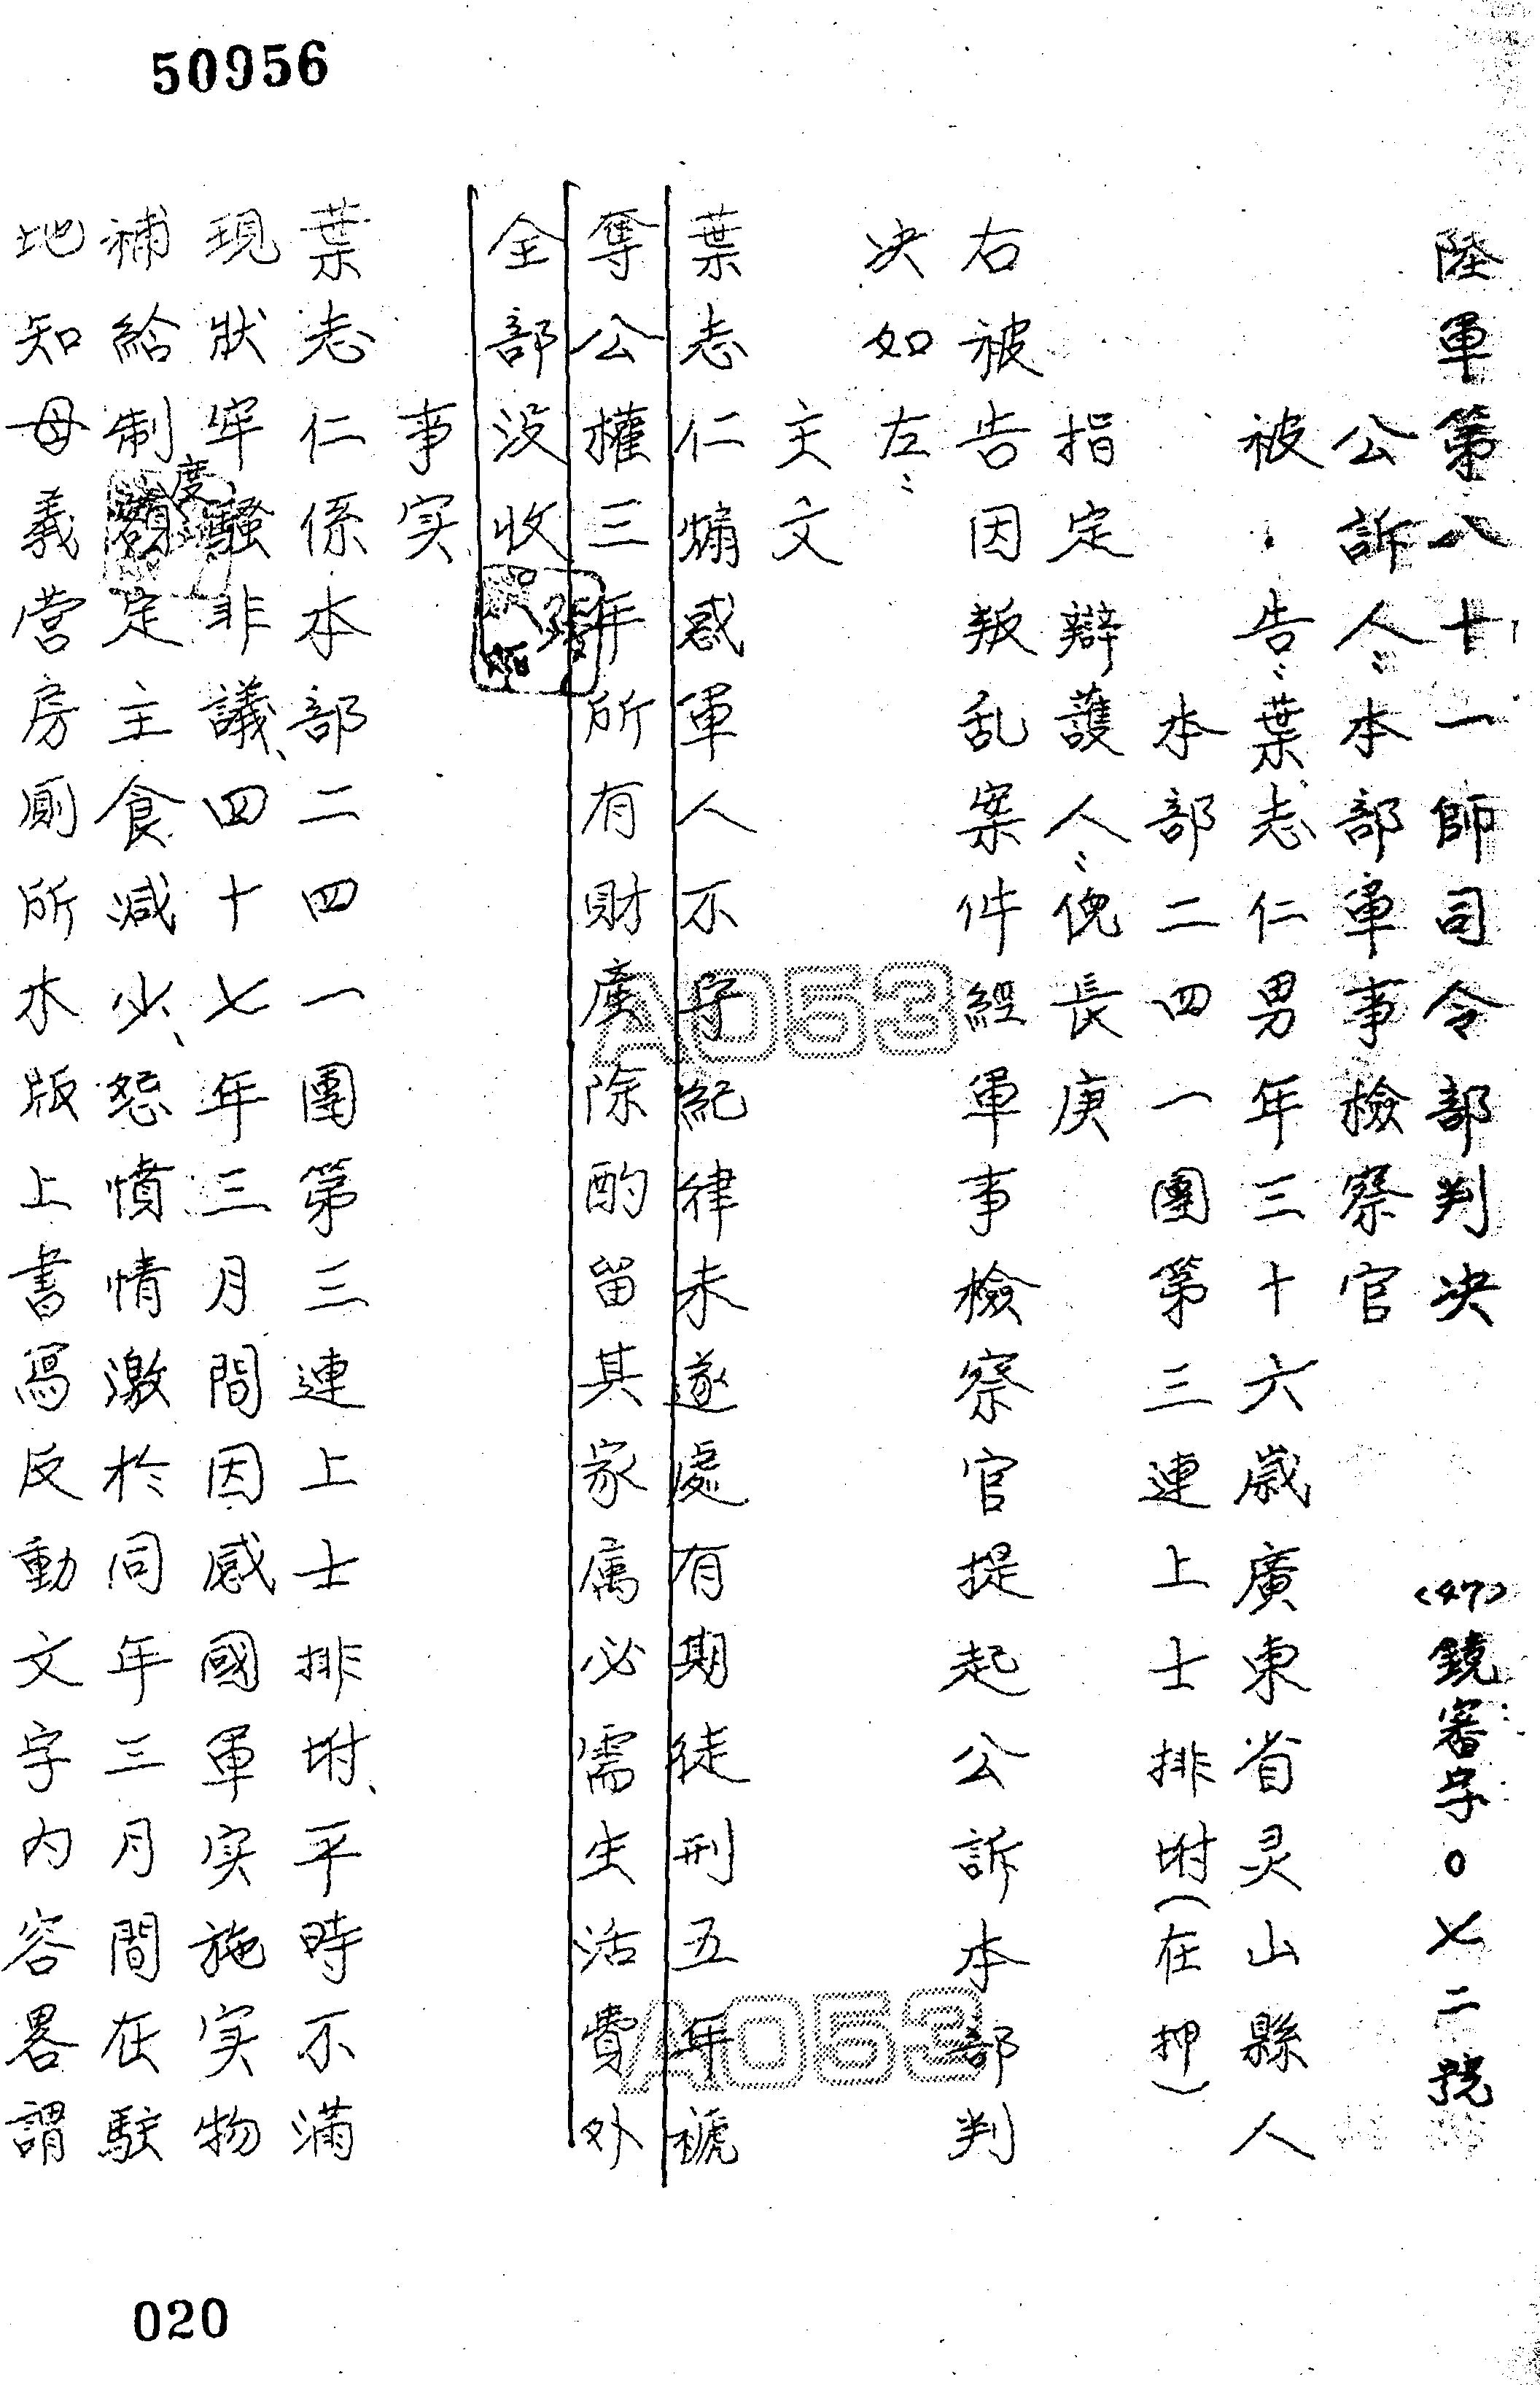 50956
陸軍第八十一師司令部判決 (47)鏡審字0七二號
公訴人：本部軍事檢察官
被告：葉志仁男年三十六歲廣東省灵山縣人
本部二四一團第三連上士排附(在押)
指定辯護人：倪長庚
右被告因叛乱案件經軍事檢察官提起公訴本部判
決如左：
主文
葉志仁煽惑軍人不守紀律未遂處有期徒刑五年褫
奪公權三年所有財產除酌留其家属必需生活費外
全部沒收
事实
葉志仁係本部二四一團第三連上士排附、平時不滿
現狀牢騷非議、四十七年三月間因感國軍实施实物
補給制度額定主食减少、怨憤情激於同年三月間在駐
地知母義营房厠所木版上書寫反動文字內容畧謂
A053
A053
020